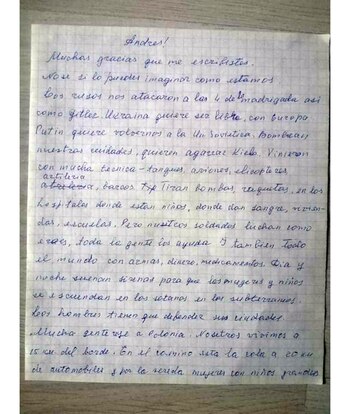 Andres!
Muchas gracias que me escribistes.
No se si lo puedes imaginar como estamos
Los rusos nos atacaron a las 4 de la madrugada asi
como Gitler. Ucraina quiere ser libre, con Europa
Putin quiere volvernos a la Un. Sovietica. Bombean
nuestras ciudades, quieren agarrar Kiev. Vinieron
con mucha tecnica - tanques, aviones, elicopteres
artileria
barcos. Tiran bombas, raquetas, en los
hospitales donde estan niños, donde dan sangre, vivien-
das, escuelas. Pero nuestros soldados luchan como
eroes, toda la gente los ayuda. Y tambien todo
el mundo con armas, dinero, medicamentos. Dia y
noche suenan sirenas para que las mujeres y niños
se escuendan en los sotanos, en los subterraneos.
Los hombres tienen que defender sus ciudades.
Mucha gente se a Polonia. Nosotros vivimos a
15 km del borde. En el camino esta la cola a 20 km
de automobiles y por la vereda mujeres con niños grandes